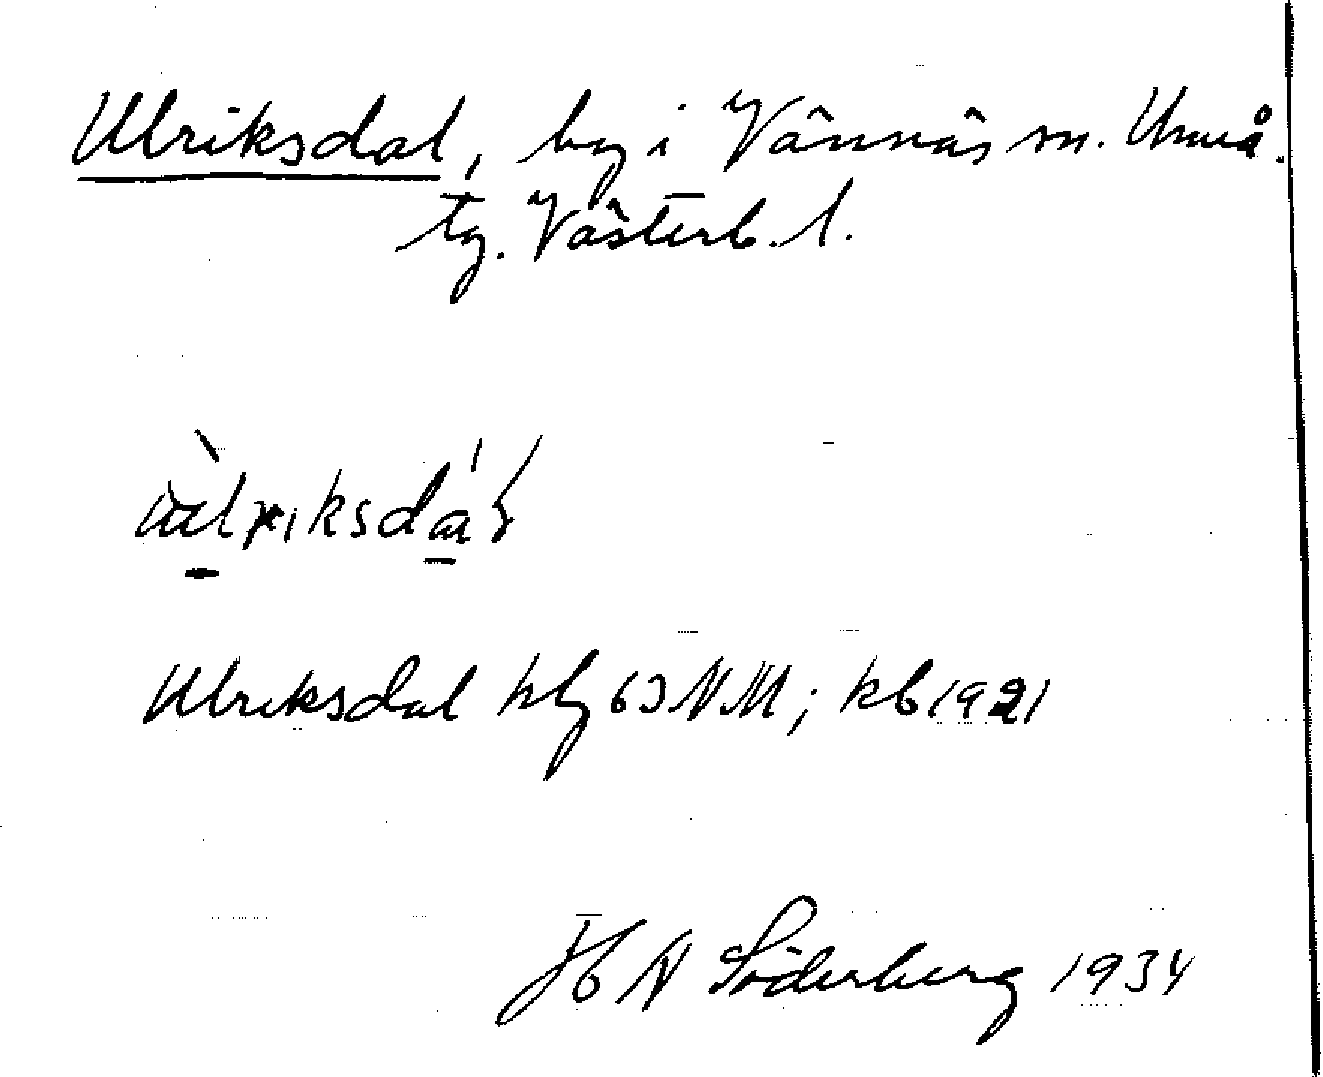 Ulriksdal, by i Vännäs sn. Umeå.
tg. Västerb. l.
Ulriksdal hbg 63 NM; kb 1921
H N Söderberg 1934